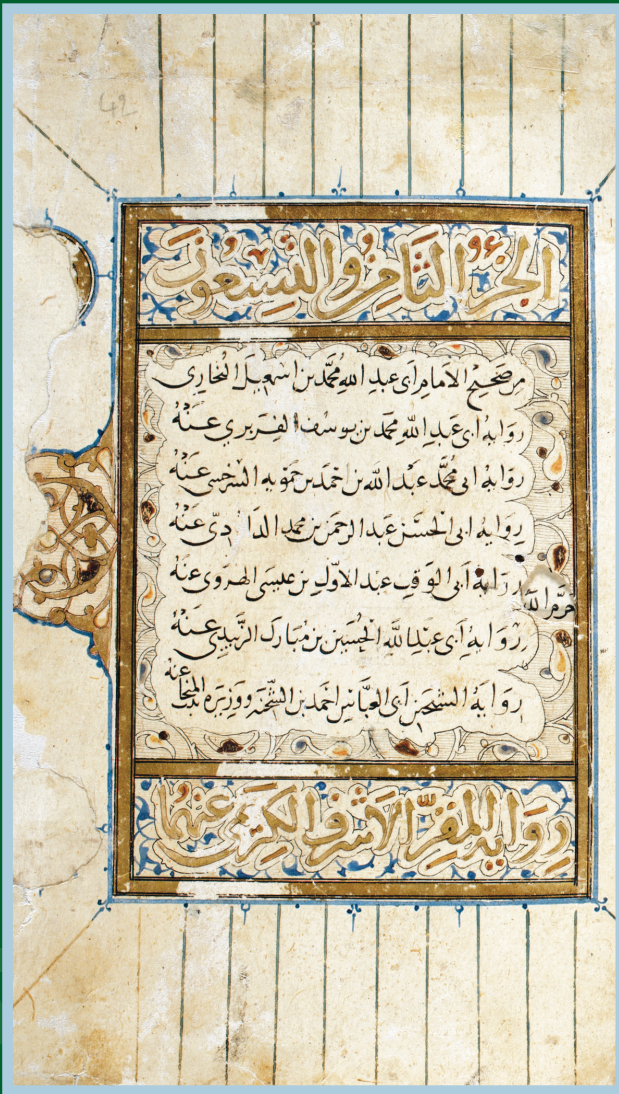 42
الجزء الثامن والتسعون
من صحيح الامام ابى عبد الله محمد بن اسمعيل البخارى
رواية ابى عبد الله محمد بن يوسف الفربرى عنه
رواية ابى محمد عبد الله بن احمد بن حمويه السرخسى عنه
رواية ابى الحسن عبد الرحمن بن محمد الداودى عنه
رواية ابى الوقت عبد الاول بن عيسى الهروى عنه
رواية ابى عبد الله الحسين بن مبارك الزبيدى عنه
رواية الشيخين ابى العباس احمد بن الشحنة ووزيره عنه
رواية للمقر الاشرف الكريمى عنهما